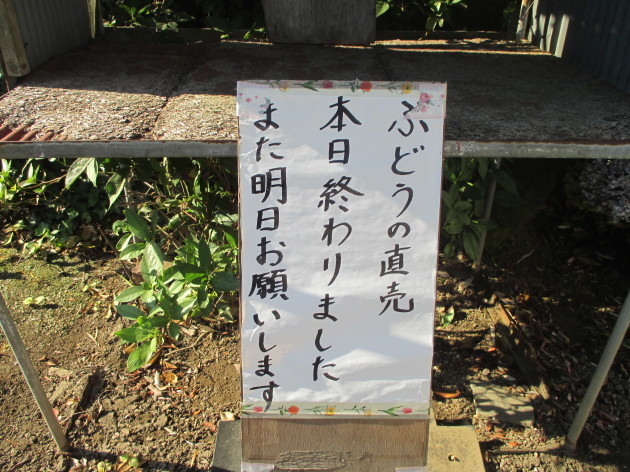 ぶどうの直売
本日終わりました
また明日お願いします